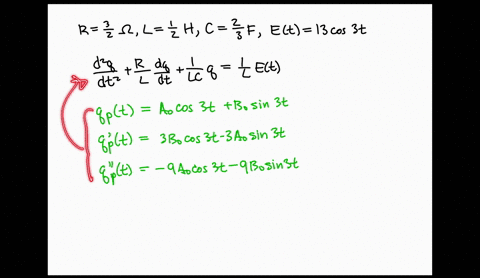 R = 3/2 Ω, L = 1/2 H, C = 2/3 F, E(t) = 13 cos 3t
d²q/dt² + R/L dq/dt + 1/LC q = 1/L E(t)
qₚ(t) = A₀ cos 3t + B₀ sin 3t
qₚ'(t) = 3B₀ cos 3t - 3A₀ sin 3t
qₚ''(t) = -9A₀ cos 3t - 9B₀ sin 3t